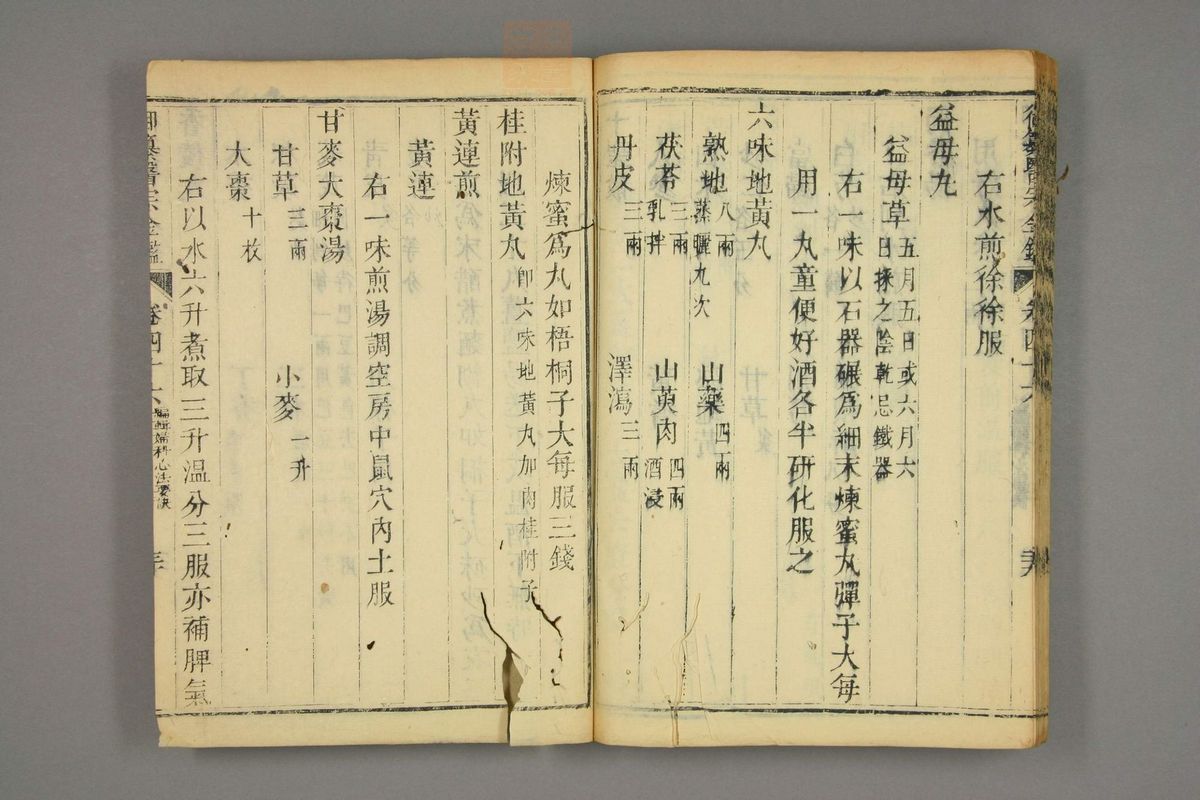 右水煎徐徐服
益母丸
益母草五月五日或六月六
日採之陰乾忌鐵器
右一味以石器碾為細末煉蜜丸彈子大每
用一丸童便好酒各半研化服之
六味地黃丸
熟地八兩 山藥四兩
蒸曬九次
茯苓三兩 山萸肉四兩
乳拌 酒浸
丹皮三兩 澤瀉三兩
煉蜜為丸如梧桐子大每服三錢
桂附地黃丸即六味地黃丸加肉桂附子
黃連煎
黃連
右一味煎湯調空房中鼠穴內土服
甘麥大棗湯
甘草三兩 小麥一升
大棗十枚
右以水六升煮取三升溫分三服亦補脾氣
御纂醫宗金鑑 卷四十六 編輯婦科心法要訣